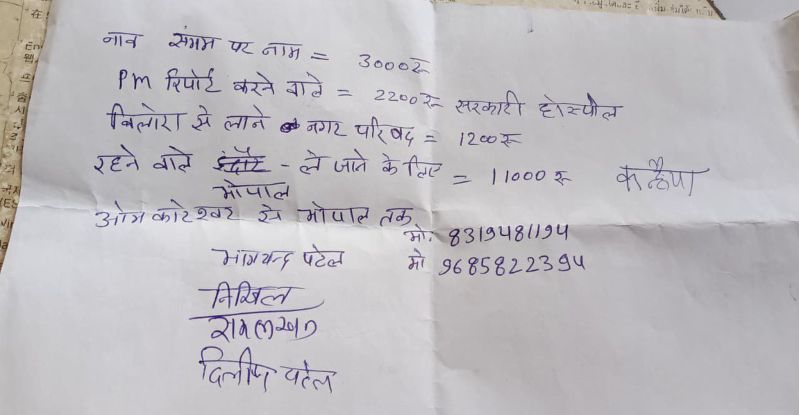 नाव संगम पर नाम = 3000रु
PM रिपोर्ट करने वाले = 2200रु सरकारी होस्पीटल
बिलोरा से लाने नगर परिषद = 1200रु
रहने वाले इंदौर - ले जाने के लिए = 11000रु कन्हैया
भोपाल
ओमकारेश्वर से भोपाल तक
मो. 8319481194
भागचन्द पटेल मो 9685822394
निखिल
रामलखन
दिलीप पटेल